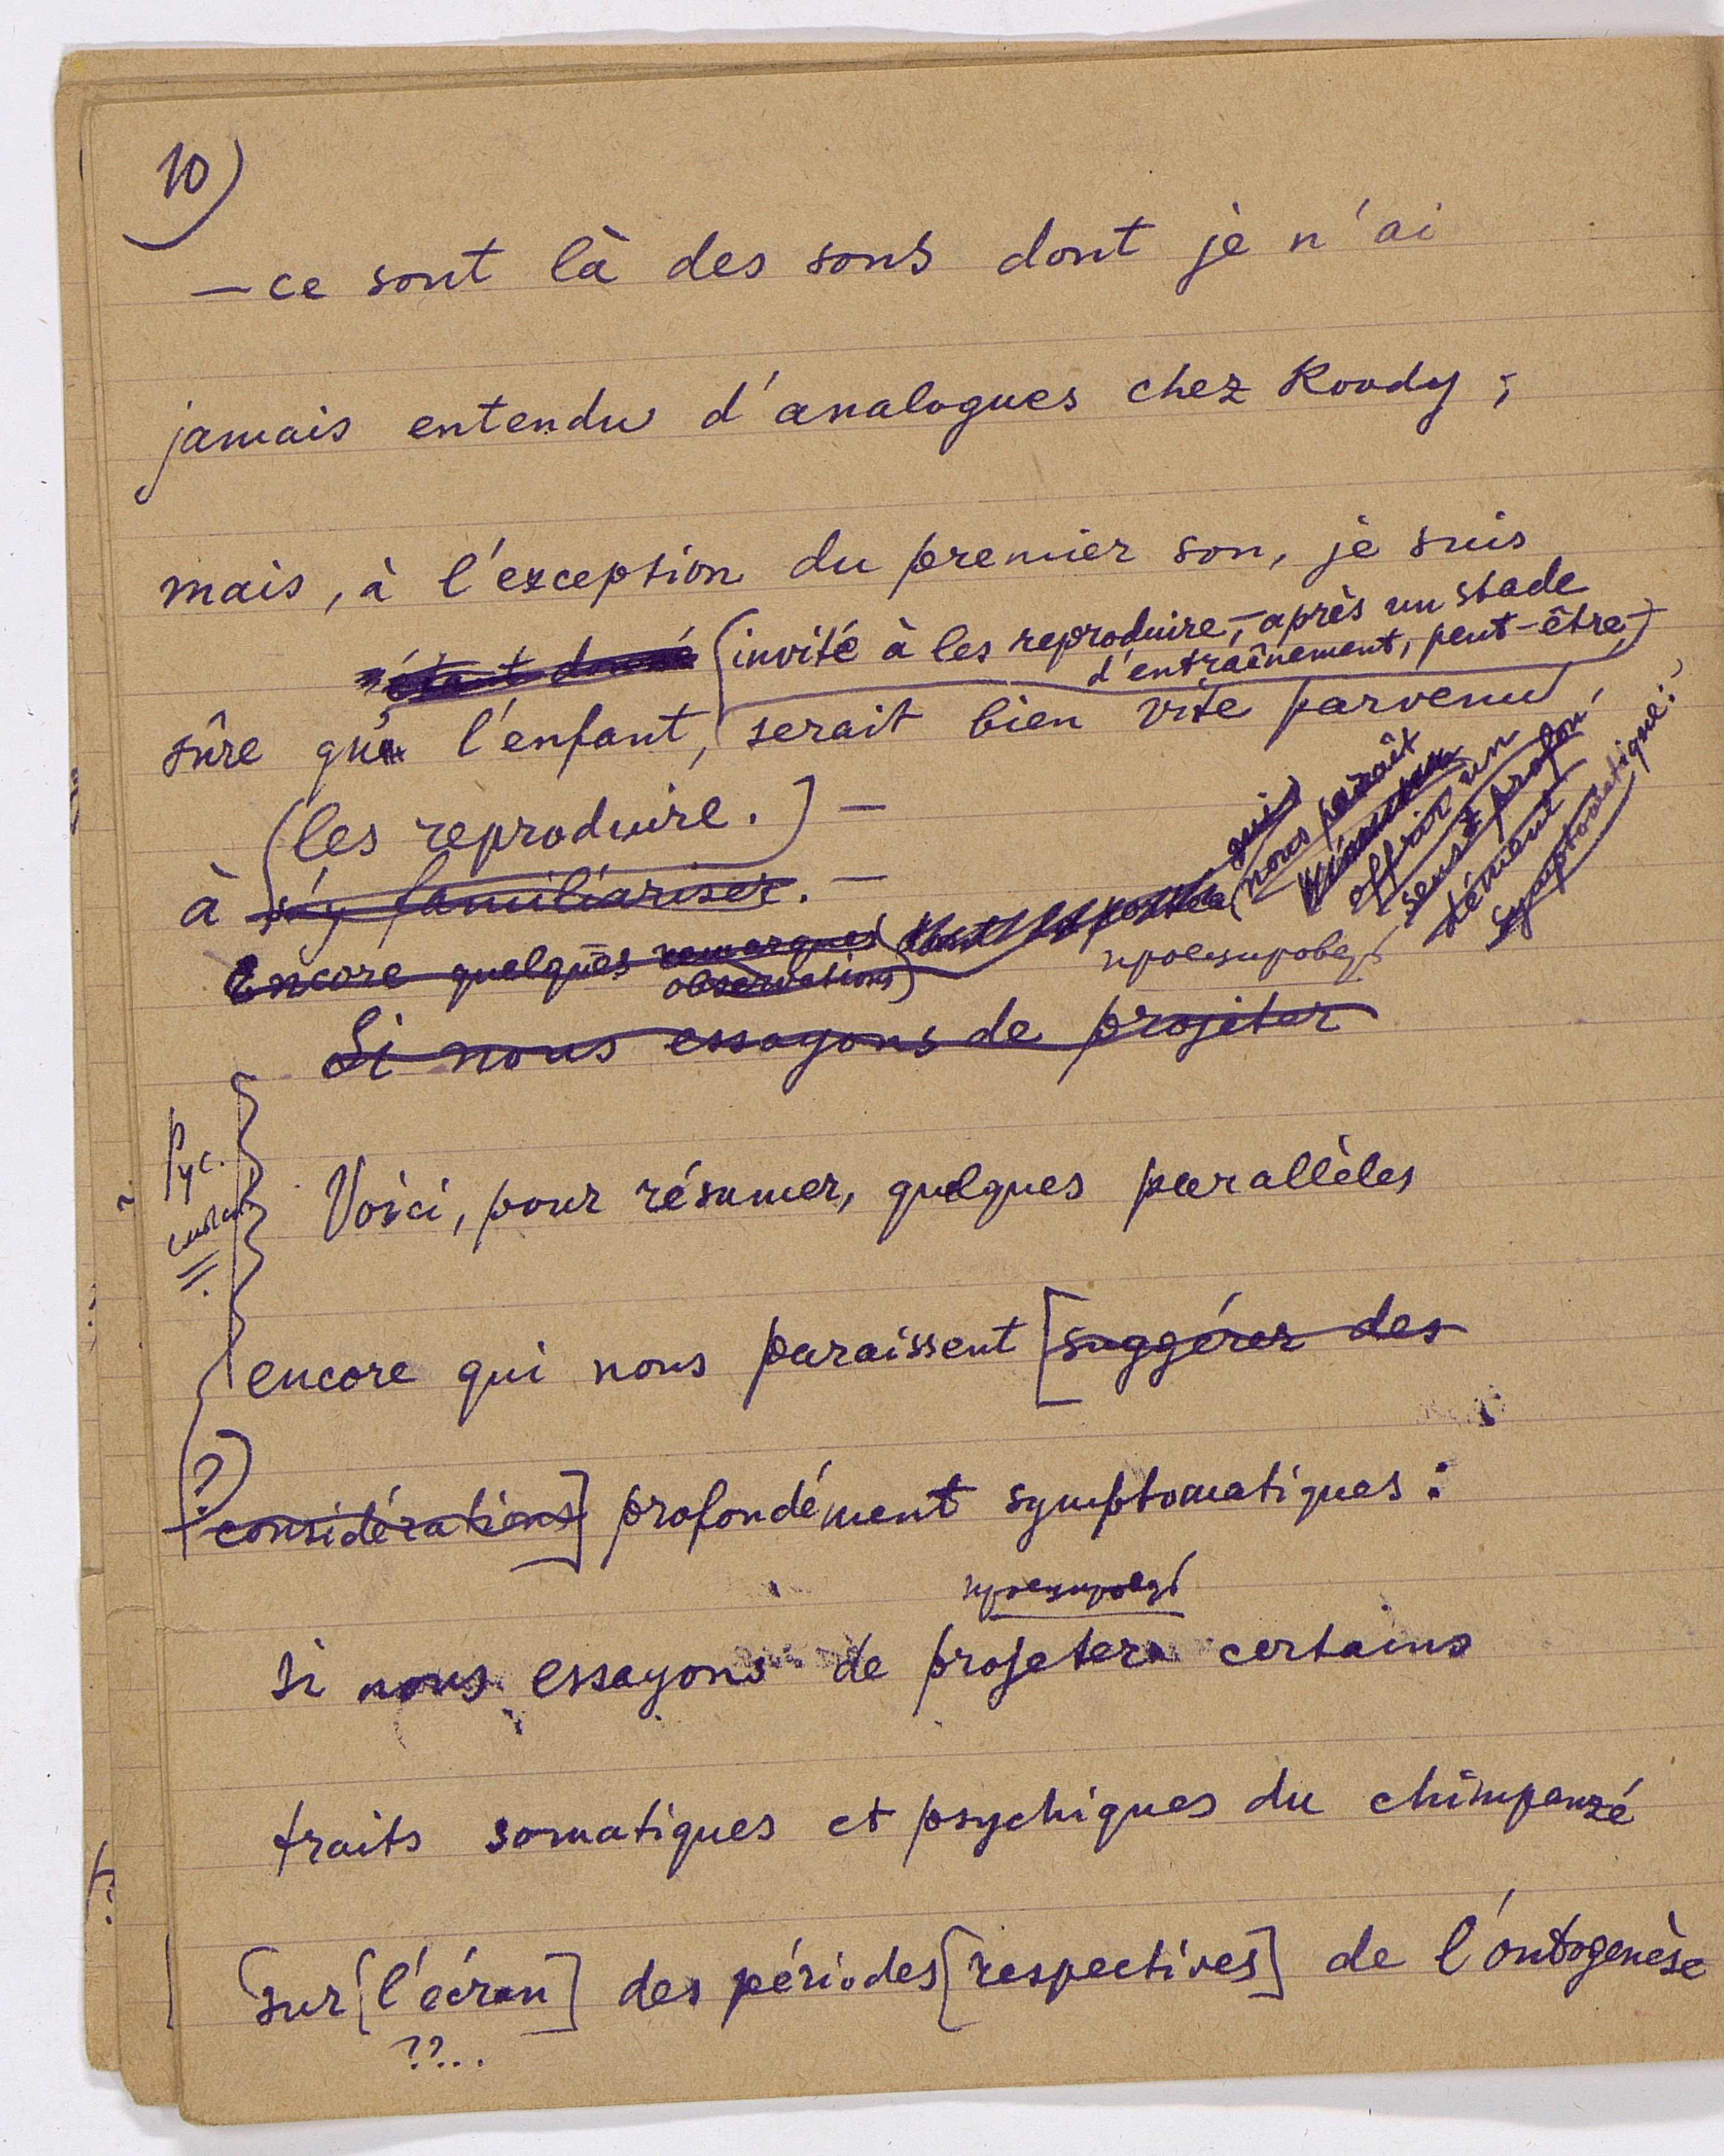 10)
— ce sont là des sons dont je n'ai
jamais entendu d'analogues chez Roody ;
mais, à l'exception du premier son, je suis
étant donné (invité à les reproduire, – après un stade
d'entraînement, peut-être,)
sûre que l'enfant, serait bien vite parvenu
(les reproduire.) —
à s'y familiariser. —
Encore quelques remarques
observations
qui
nous paraît
offrir un
sens profon-
dément
symptomatique:
проецировать
Si nous essayons de projeter
Рус.
Voici, pour résumer, quelques parallèles
encore qui nous paraissent [suggérer des
(?)
considérations] profondément symptomatiques :
проецировать
si nous essayons de projeter certains
traits somatiques et psychiques du chimpanzé
sur [l'écran] des périodes [respectives] de l'ontogenèse
??...